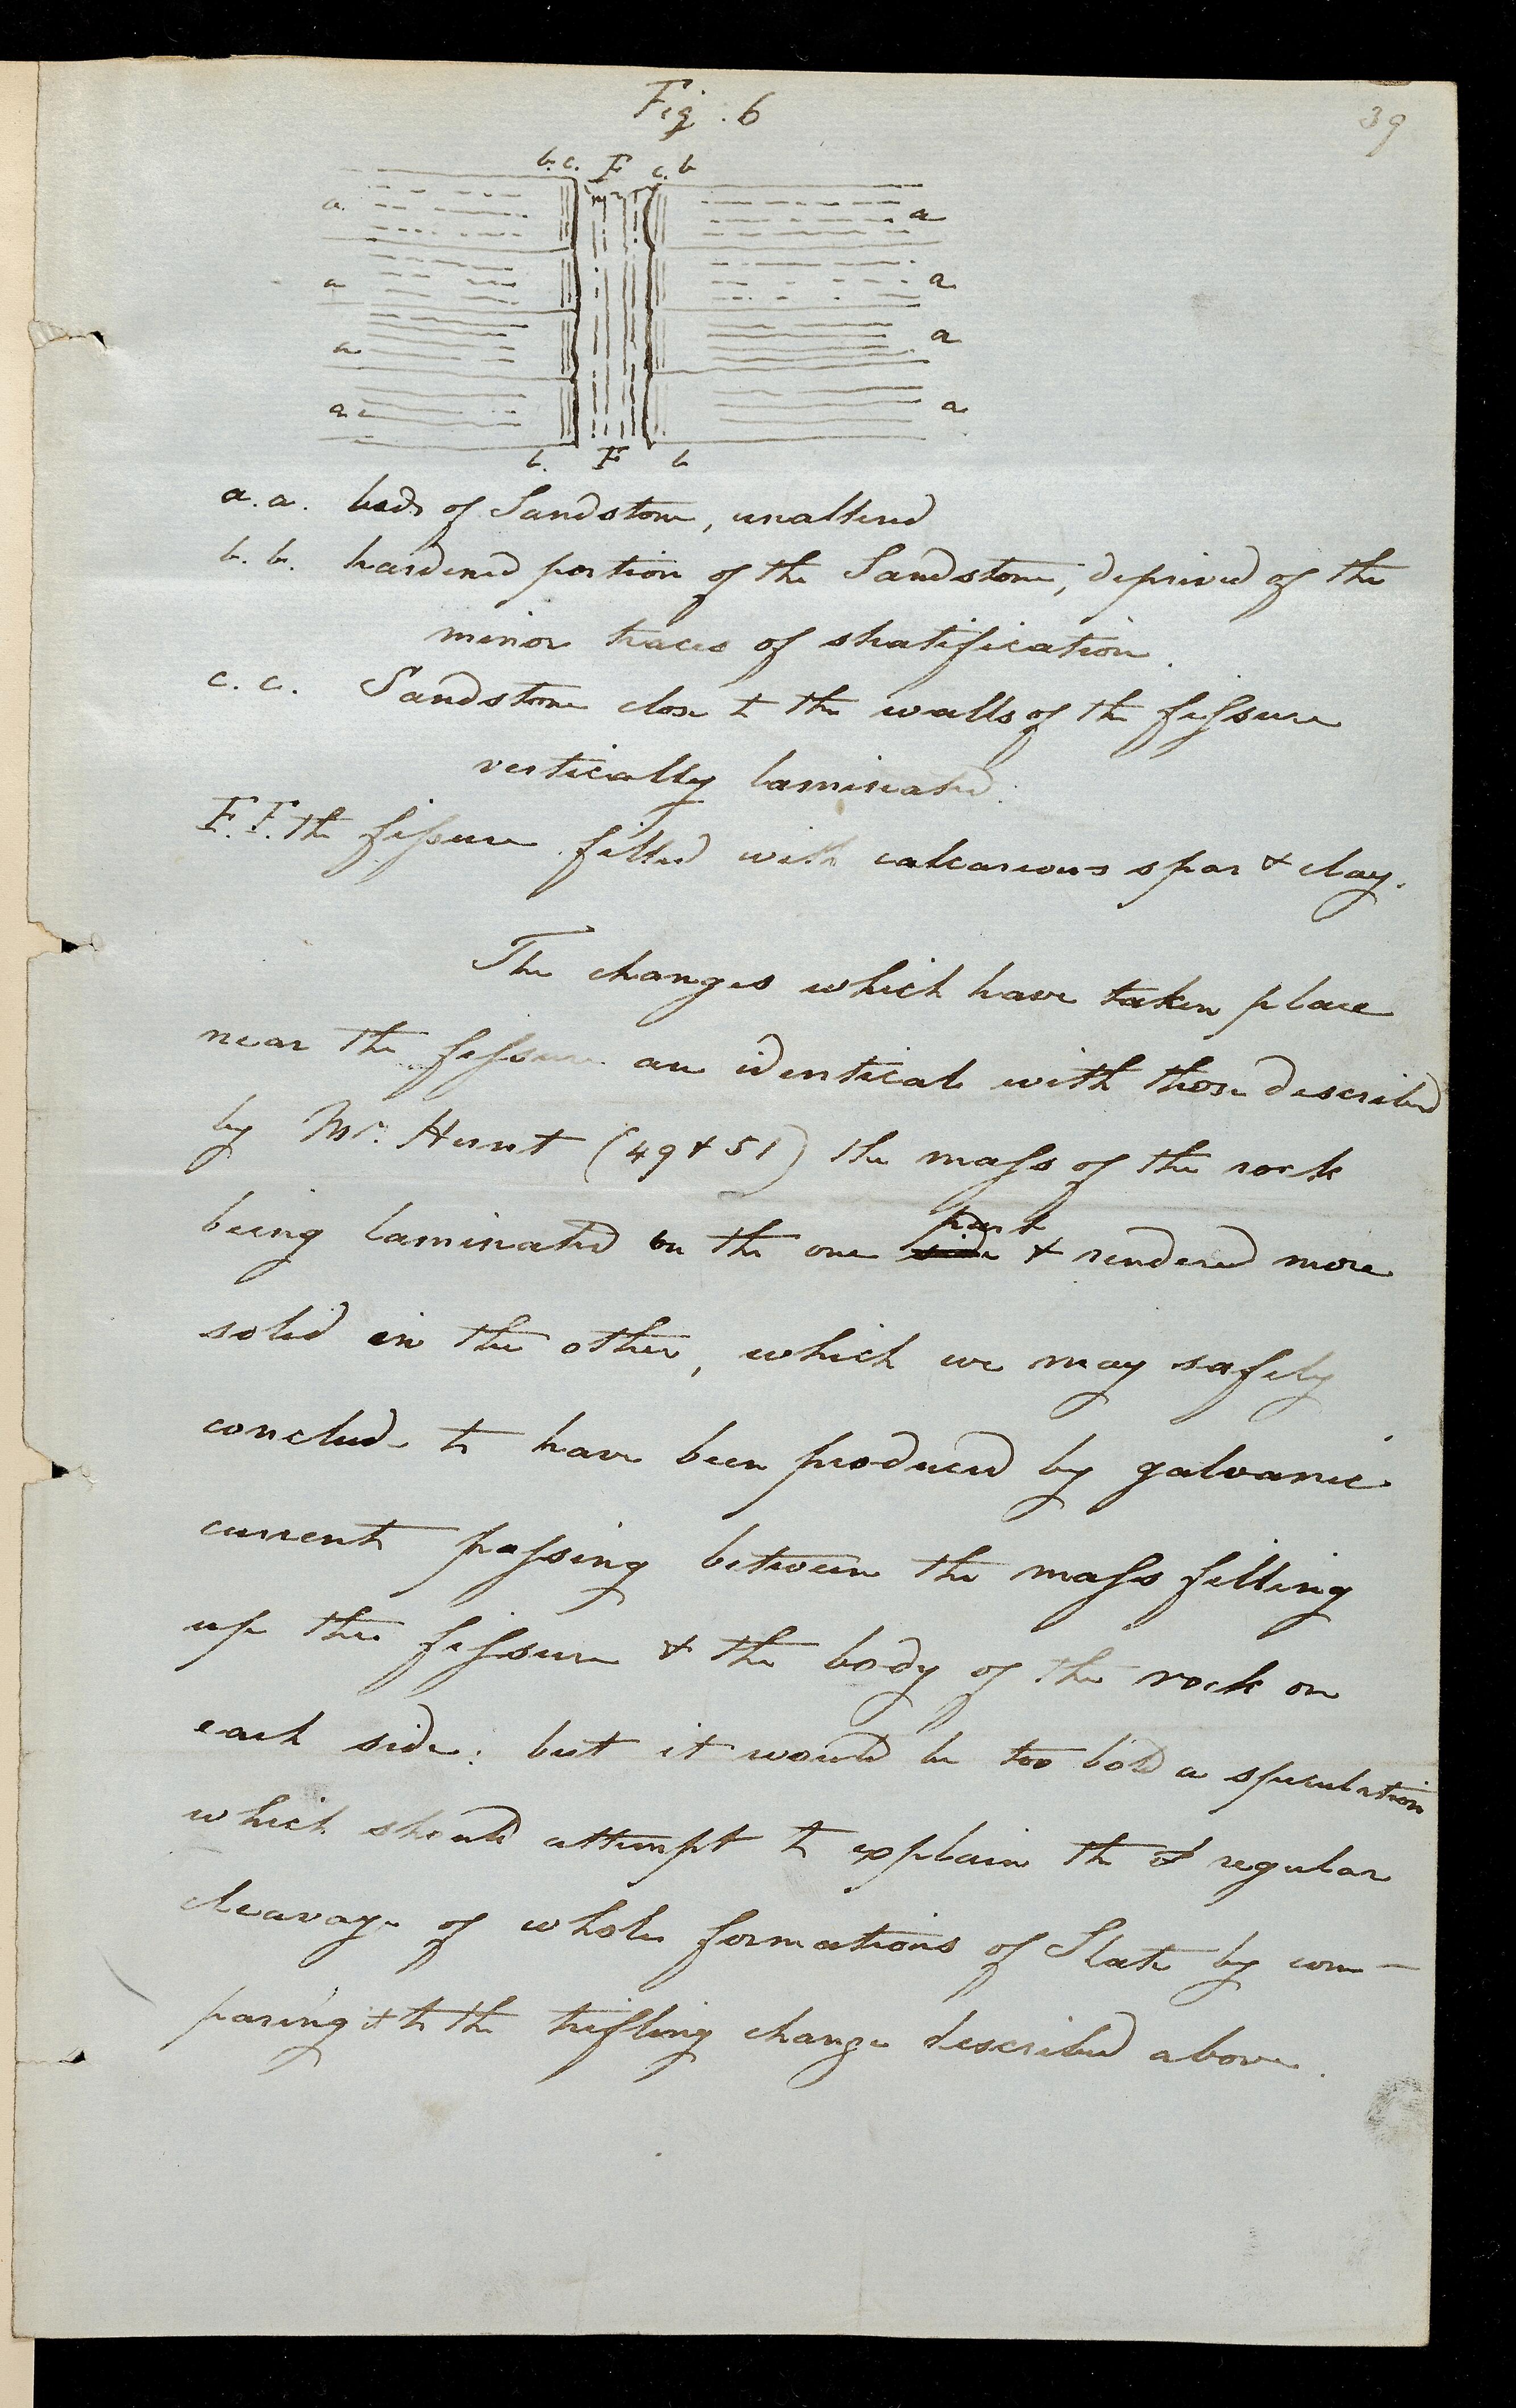 39
Fig. 6
b. c. F c. b
a. a
a a
a a
a a
b. F b
a. a. beds of Sandstone, unaltered
b. b. hardened portion of the Sandstone, deprived of the
minor traces of stratification.
c. c. Sandstone close to the walls of the fissure
vertically laminated.
F. F. the fissure filled with calcareous spar & clay.
The changes which have taken place
near the fissure are identical with those described
by Mr. Hunt (49 & 51) the mass of the rock
part
being laminated on the one side & rendered more
solid in the other, which we may safely
conclude to have been produced by galvanic
current passing between the mass filling
up the fissure & the body of the rock on
each side: but it would be too bold a speculation
which should attempt to explain the regular
cleavage of whole formations of Slate by com-
paring it to the trifling change described above.